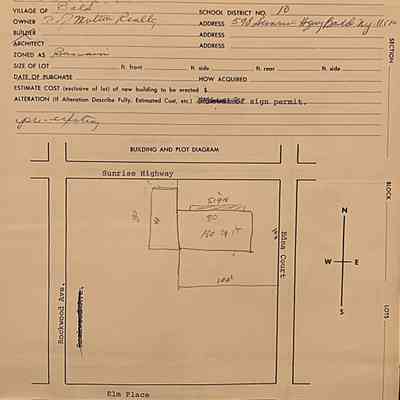 VILLAGE OF Bald SCHOOL DISTRICT NO. 10
OWNER Realty ADDRESS 598 Sunrise Hgwy Bald Ny.
BUILDER ADDRESS
ARCHITECT ADDRESS
ZONED AS Business
SIZE OF LOT ft. front ft. side ft. rear ft. side
DATE OF PURCHASE HOW ACQUIRED
ESTIMATE COST (exclusive of lot) of new building to be erected $
ALTERATION (If Alteration Describe Fully, Estimated Cost, etc.) sign permit.
pre-existing
BUILDING AND PLOT DIAGRAM
Sunrise Highway
SIGN
20
150 sq ft
100'
Edna Court
Rockwood Ave.
Elm Place
N
W E
S
SECTION
BLOCK
LOTS